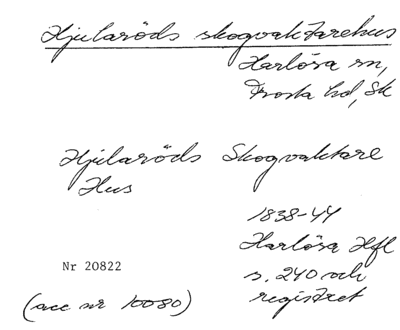 Hjularöds skogvaktarehus
Harlösa sn,
Frosta hd, Sk
Hjularöds Skogvaktare
Hus
1838-44
Harlösa Hfl
s. 240 och
registret
Nr 20822
(acc nr 10080)